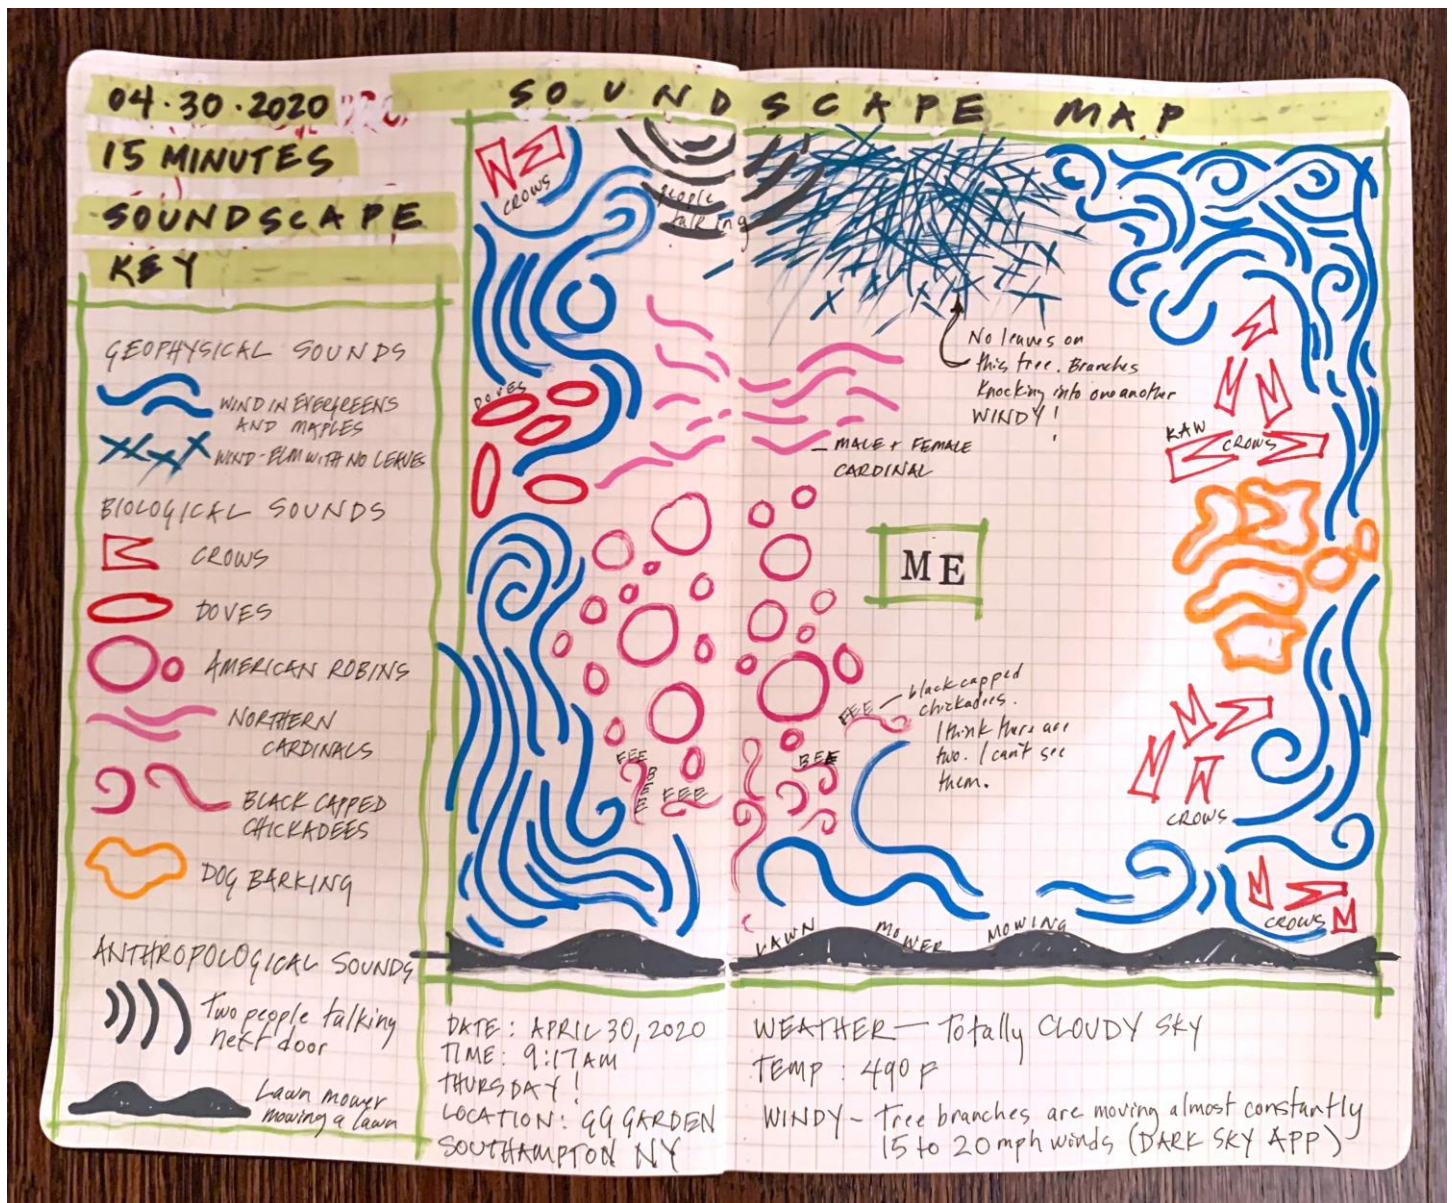 04·30·2020
15 MINUTES
SOUNDSCAPE
KEY
GEOPHYSICAL SOUNDS
WIND IN EVERGREENS
AND MAPLES
WIND-ELM WITH NO LEAVES
BIOLOGICAL SOUNDS
CROWS
DOVES
AMERICAN ROBINS
NORTHERN
CARDINALS
BLACK CAPPED
CHICKADEES
DOG BARKING
ANTHROPOLOGICAL SOUNDS
Two people talking
next door
Lawn mower
mowing a lawn
SOUNDSCAPE MAP
CROWS
people
talking
No leaves on
this tree. Branches
knocking into one another
WINDY!
DOVES
MALE + FEMALE
CARDINAL
KAW
CROWS
ME
black capped
chickadees.
I think there are
two. I can't see
them.
FEE
FEE
BEE
FEE
BEE
CROWS
CROWS
LAWN MOWER MOWING
DATE: APRIL 30, 2020
TIME: 9:17AM
THURSDAY!
LOCATION: GG GARDEN
SOUTHAMPTON NY
WEATHER — Totally CLOUDY SKY
TEMP: 49º F
WINDY – Tree branches are moving almost constantly
15 to 20 mph winds (DARK SKY APP)